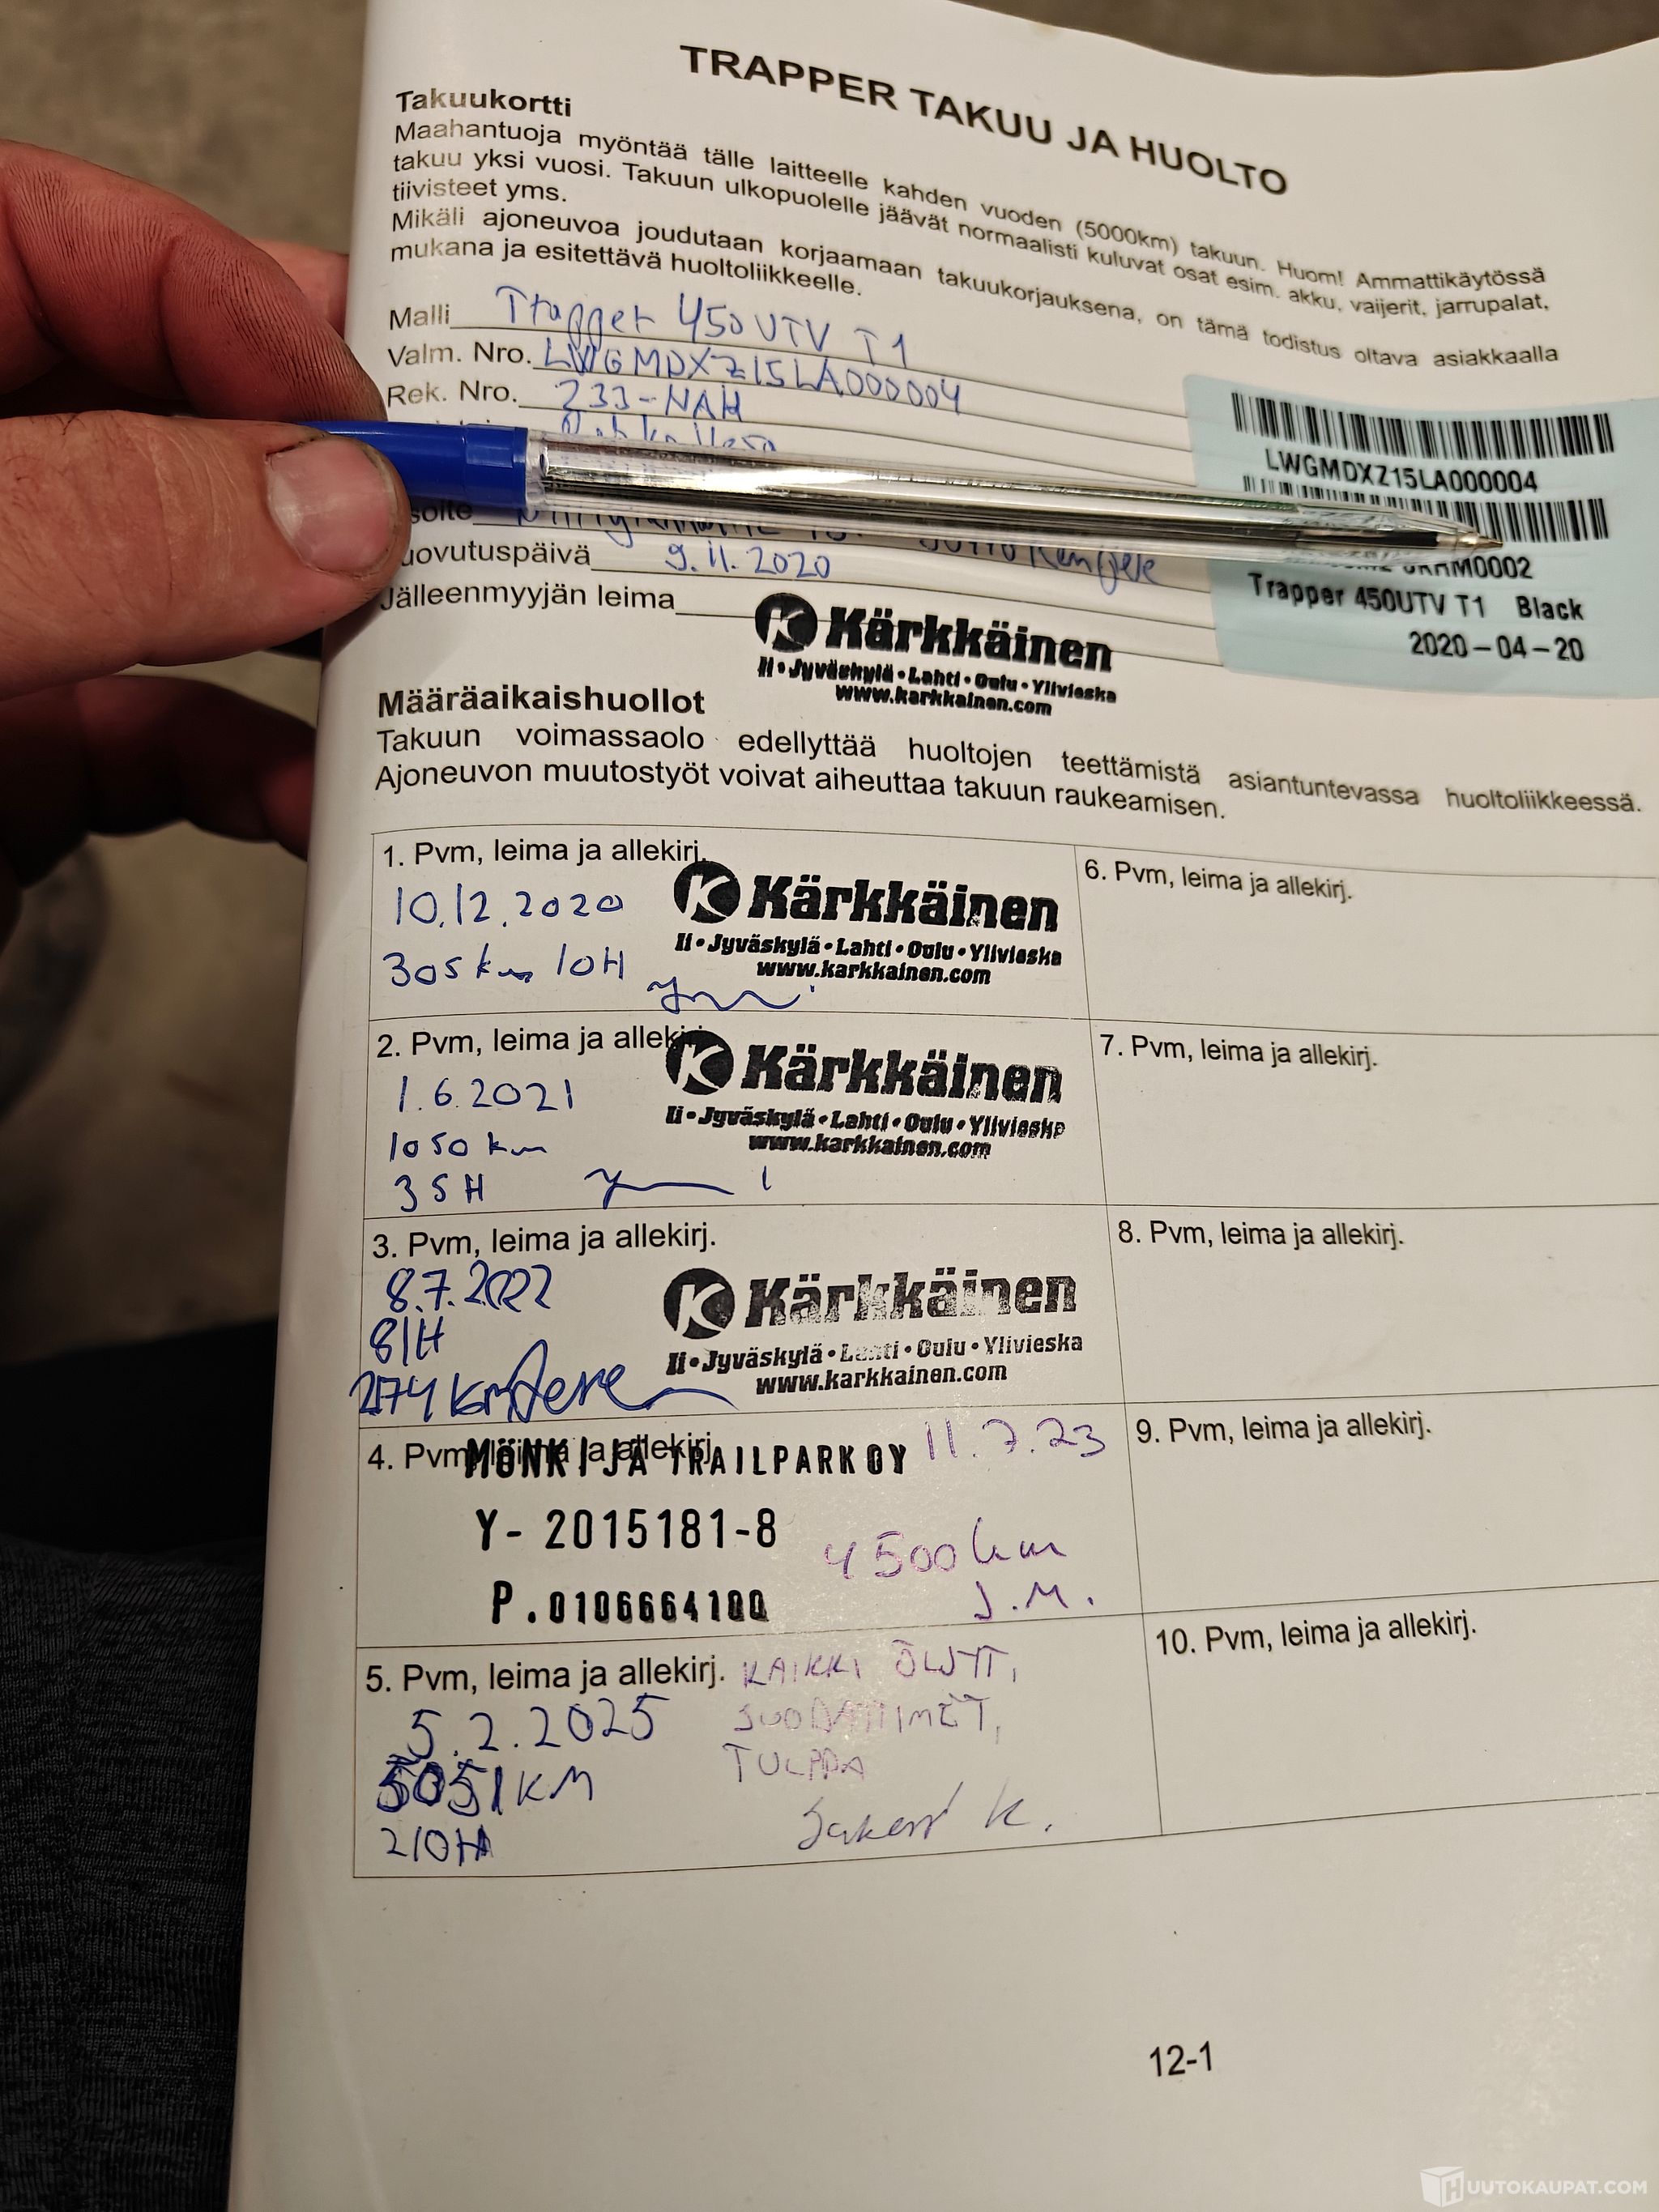 TRAPPER TAKUU JA HUOLTO
Takuukortti
Maahantuoja myöntää tälle laitteelle kahden vuoden (5000km) takuun. Huom! Ammattikäytössä
takuu yksi vuosi. Takuun ulkopuolelle jäävät normaalisti kuluvat osat esim. akku, vaijerit, jarrupalat,
tiivisteet yms.
Mikäli ajoneuvoa joudutaan korjaamaan takuukorjauksena, on tämä todistus oltava asiakkaalla
mukana ja esitettävä huoltoliikkeelle.
Malli Trapper 450 UTV T1
Valm. Nro. LWGMDXZ15LA000004
Rek. Nro. 233-NAH
LWGMDXZ15LA000004
uovutuspäivä 9.11.2020
Trapper 450UTV T1 Black
2020-04-20
Jälleenmyyjän leima
Kärkkäinen
Ii • Jyväskylä • Lahti • Oulu • Ylivieska
www.karkkainen.com
Määräaikaishuollot
Takuun voimassaolo edellyttää huoltojen teettämistä asiantuntevassa huoltoliikkeessä.
Ajoneuvon muutostyöt voivat aiheuttaa takuun raukeamisen.
1. Pvm, leima ja allekirj.
10.12.2020
305 km 10H
Kärkkäinen
Ii • Jyväskylä • Lahti • Oulu • Ylivieska
www.karkkainen.com
6. Pvm, leima ja allekirj.
2. Pvm, leima ja allekirj.
1.6.2021
1050 km
35H
Kärkkäinen
Ii • Jyväskylä • Lahti • Oulu • Ylivieska
www.karkkainen.com
7. Pvm, leima ja allekirj.
3. Pvm, leima ja allekirj.
8.7.2022
81H
2174 km
Kärkkäinen
Ii • Jyväskylä • Lahti • Oulu • Ylivieska
www.karkkainen.com
8. Pvm, leima ja allekirj.
4. Pvm, leima ja allekirj.
MÖNKIJA TRAILPARK OY
11.7.23
Y- 2015181-8
4500 km
P.0106664100
J.M.
9. Pvm, leima ja allekirj.
5. Pvm, leima ja allekirj.
5.2.2025
5051 KM
210H
KAIKKI ÖLJYT,
SUODATTIMET,
TULPPA
K.
10. Pvm, leima ja allekirj.
12-1
HUUTOKAUPAT.COM